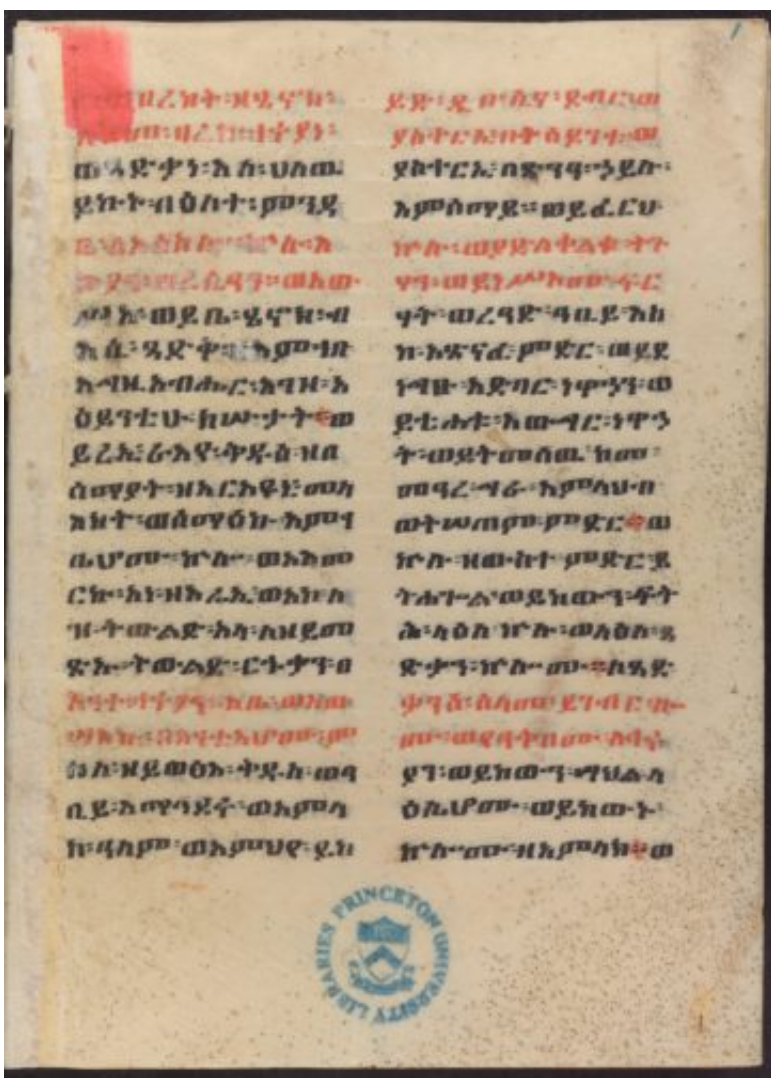 በረከት፡ዘሄኖክ፡
ባረከ፡ኅሩያነ፡
ወጻድቃነ፡እለ፡ሀለው
ይኩኑ፡በዕለተ፡ምንዳ
ቤ፡ለአሰስሎ፡ኵሉ፡እ
ኩያን፡ወረሲዓን፡ወአው
ሥአ፡ወይቤ፡ሄኖክ፡ብ
እሲ፡ጻድቅ፡ዘእምኀበ
እግዚአብሔር፡እንዘ፡አ
ዕይንቲሁ፡ክሡታት።ወ
ይሬኢ፡ራእየ፡ቅዱሰ፡ዘበ
ሰማያት፡ዘአርአዩኒ፡መላ
እክት፡ወሰማዕኩ፡እምኀ
ቤሆሙ፡ኵሎ፡ወአእመ
ርኩ፡አነ፡ዘእሬኢ፡ወአኮ፡ለ
ዝ፡ትውልድ፡አላ፡ለዘይመ
ጽኡ፡ትውልድ፡ርኁቃን፡በ
እንተ፡ኅሩያን፡እቤ፡ወአው
ሣእኩ፡በእንቲአሆሙ፡ም
ስለ፡ዘይወፅእ፡ቅዱስ፡ወዓ
ቢይ፡እማኅደሩ፡ወአምላ
ከ፡ዓለም፡ወእምህየ፡ይከ
ይድ፡ዲበ፡ሲና፡ደብር፡ወ
ያስተርኢ፡በትዕይንቱ፡ወ
ያስተርኢ፡በጽንዓ፡ኃይሉ፡
እምሰማይ፡ወይፈርህ
ኵሉ፡ወያድለቀልቁ፡ትጉ
ሃን፡ወይነሥኦሙ፡ፍር
ሃት፡ወረዓድ፡ዓቢይ፡እስ
ከ፡አጽናፈ፡ምድር፡ወይደ
ነግፁ፡አድባር፡ነዋኃን፡ወ
ይቴሐቱ፡አውግር፡ነዋኃ
ት፡ወይትመሰዉ፡ከመ፡
መዓረ፡ግራ፡እምላህብ
ወትሠጠም፡ምድር።ወ
ኵሉ፡ዘውስተ፡ምድር፡ይ
ትሐጐል፡ወይከውን፡ፍት
ሕ፡ላዕለ፡ኵሉ፡ወላዕለ፡ጻ
ድቃን፡ኵሎሙ።ለጻድ
ቃንሰ፡ሰላመ፡ይገብር፡ሎ
ሙ፡ወየዓቅቦሙ፡ለኅሩ
ያን፡ወይከውን፡ሣህል፡ላ
ዕሌሆሙ፡ወይከውኑ፡
ኵሎሙ፡ዘአምላክ።ወ
PRINCETON UNIVERSITY LIBRARIES
1